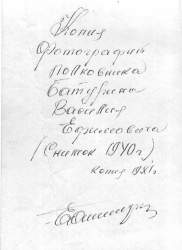 Копия
Фотографии
полковника
Батурина
Василия
Ефимовича
(Снимок 1940г.)
копия 1981г.